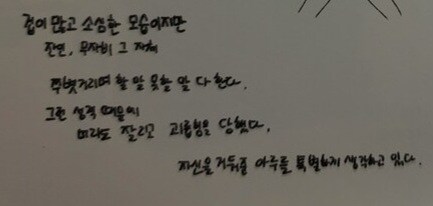 겁이 많고 소심한 모습이지만
잔인, 무자비 그 자체
쭈볏거리며 할 말 못할 말 다 한다.
그런 성격 때문에
따돌림 괴롭힘을 당했다.
자신을 거둬준 아루를 특별하게 생각하고 있다.